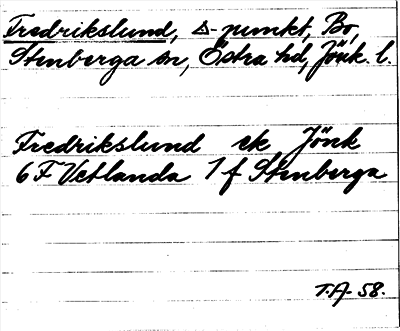 Fredrikslund, △-punkt, Bo,
Stenberga sn, Östra hd, Jönk. l.
Fredrikslund ek Jönk
6 F Vetlanda 7 f Stenberga
T.A. 58.